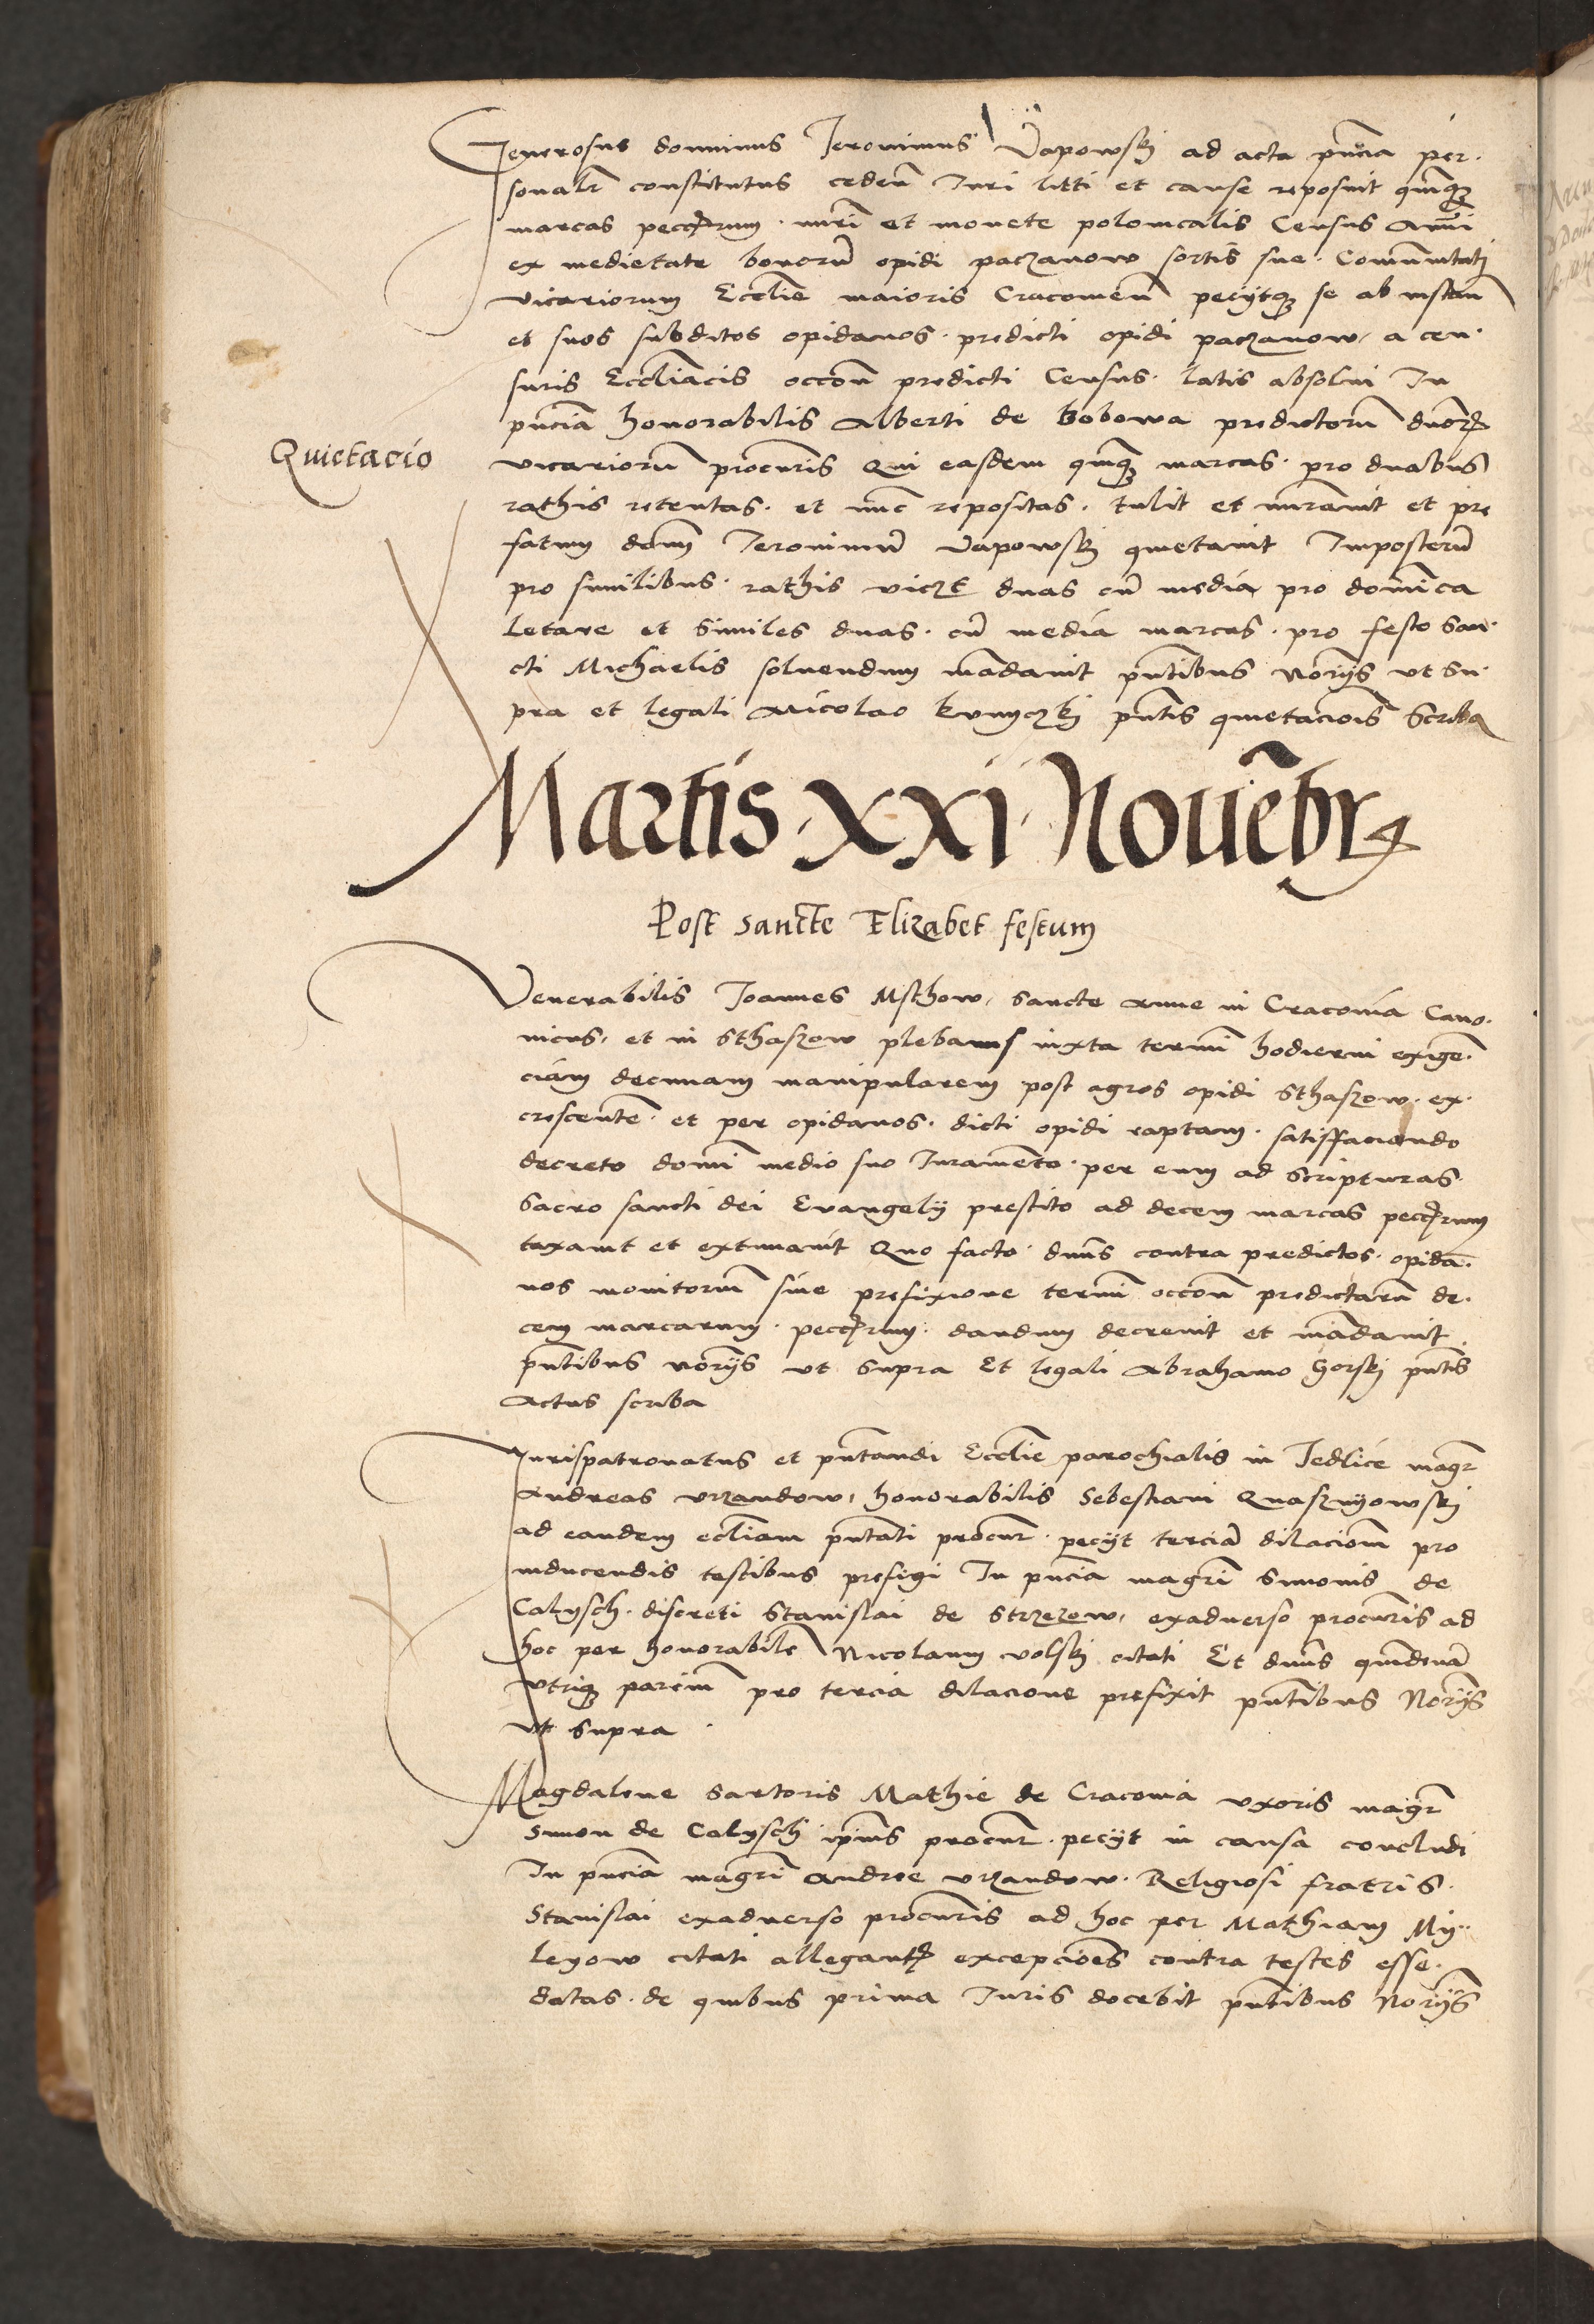 Generosus dominus Jeronimus Vapowskj ad acta pńcia per·
sonalr̃ constitutus cedeñ Juri litti et cause reposuit quinqʒ
marcas peccꝝum · nuri et monete polonicalis Census Annui
ex medietate bonorũ opidi paczanow sortis sue · Comunitatj
vicariorum Ecclie maioris Cracouien̄ pecijtqʒ se ab instan̄
et suos subditos opidanos · predicti opidi paczanow, a cen·
suris Eccliãcis occoñ predicti Census · latis absolui In
pñcia honorabilis Alberti de Bobowa predictorũ dnorꝝ
Quietacio
vicariorũ procuris Qui easdem quinqʒ marcas · pro duabus
rathis retentas · et nũc repositas · tulit et nũrauit et pre
fatum dnm̃ Jeronimũ Vapowskj quietauit Imposterũ
pro similibus · rathis viczt duas cũ media pro dominica
Letare et similes duas · cũ media marcas · pro festo San·
cti Michaelis soluendum mãdauit pñtibus Norijs vt su·
pra et legali Nicolao kunyczkj pñtis quietaciõis Scriba
Martis · XXI · Nouẽbrꝭ
Post sancte Elizabet festum
Venerabilis Joannes Msthow, sancte Anne in Cracouia Cano·
nicus, et in Sthaszow plebanus iuxta termi hodierni exigẽ·
ciam decimam manipularem post agros opidi Sthaszow · ex·
crescentẽ · et per opidanos · dicti opidi raptam · satisffaciendo
decreto domi medio suo Juramento · per eum ad scripturas
Sacro sancti dei Evangelij prestito ad decem marcas peccꝝum
taxauit et extimauit Quo facto · dnũs contra predictos · opidã·
nos monitoriũ siue prefixione termi occoñ predictarũ de·
cem marcarum · peccꝝum · dandum decreuit et mãdauit
pñtibus norijs vt supra Et legali Abrahamo Gorskj pñtis
Actus scriba
Jurispatronatus et pñtandi Ecclie parochialis in Jedlice magr̃
Andreas vrzandow, honorabilis Sebestiani Quasznyowskj
ad eandem ecliam pñtati procur̃ · pecijt terciã dilacionẽ pro
inducendis testibus prefigi In pñcia magri Simonis de
Calysch · discreti Stanislai de Strzezow, exaduerso procuris ad
hoc per honorabilẽ Nicolaum volskj citati Et dnũs quindenã
vtriqʒ parciũ pro tercia dilacione prefixit pñtibus Norijs
vt supra
Magdalene sartoris Mathie de Cracouia vxoris magr̃
Simon de Calysch ipius procur̃ · pecijt in causa concludi
In pñcia magri Andree vrzandow · Religiosi fratris ·
Stanislai exaduerso procuris ad hoc per Mathiam My··
leyow citati allegantꝭ excepciões contra testes esse ·
datas · de quibus prima Juris docebit pñtibus Norijs